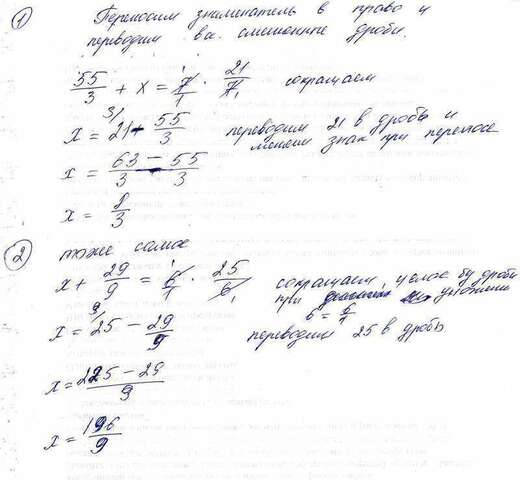 1) Переносим знаменатель в право и
переводим все смешенные дроби.
55/3 + x = 7/1 · 21/7 сокращаем
x = 21 - 55/3 переводим 21 в дробь и
меняем знак при переносе
x = 63/3 - 55/3
x = 8/3
2) тоже самое
x + 29/9 = 6/1 · 25/6 сокращаем, целое бу дроби
при умножении
6 = 6/1
x = 25 - 29/9 переводим 25 в дробь
x = 225-29/9
x = 196/9